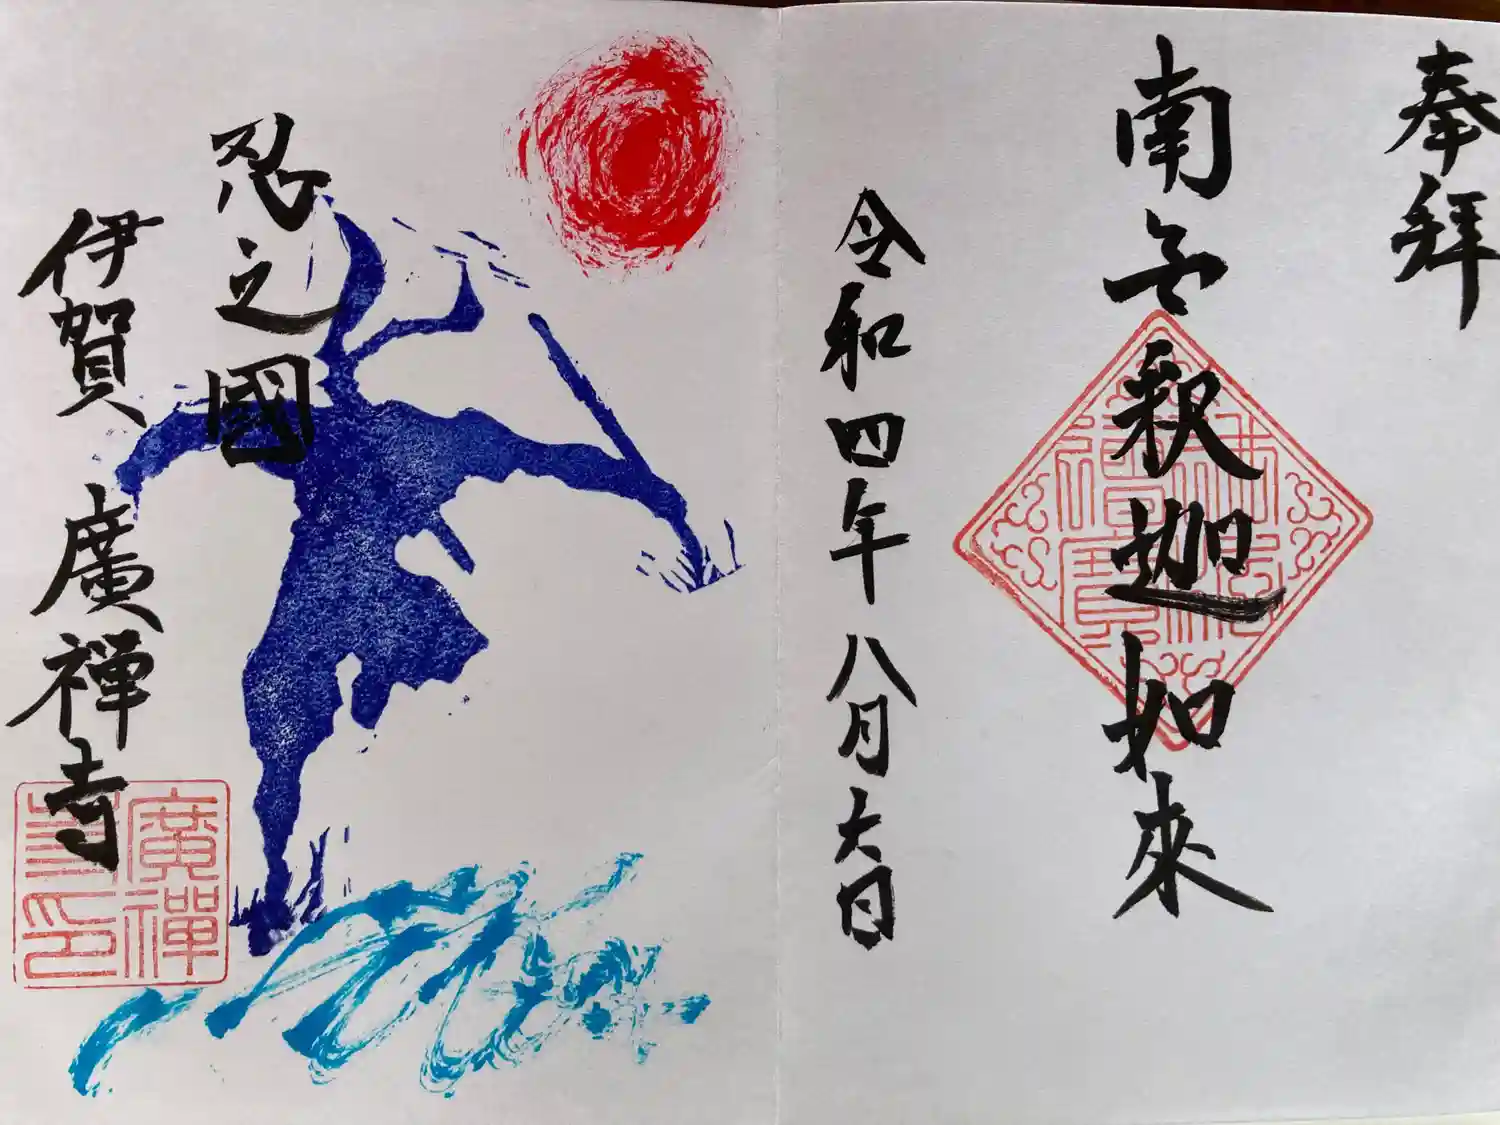 奉拜
南無釈迦如來
令和四年八月六日
忍之國
伊賀 廣禅寺
廣禪寺印